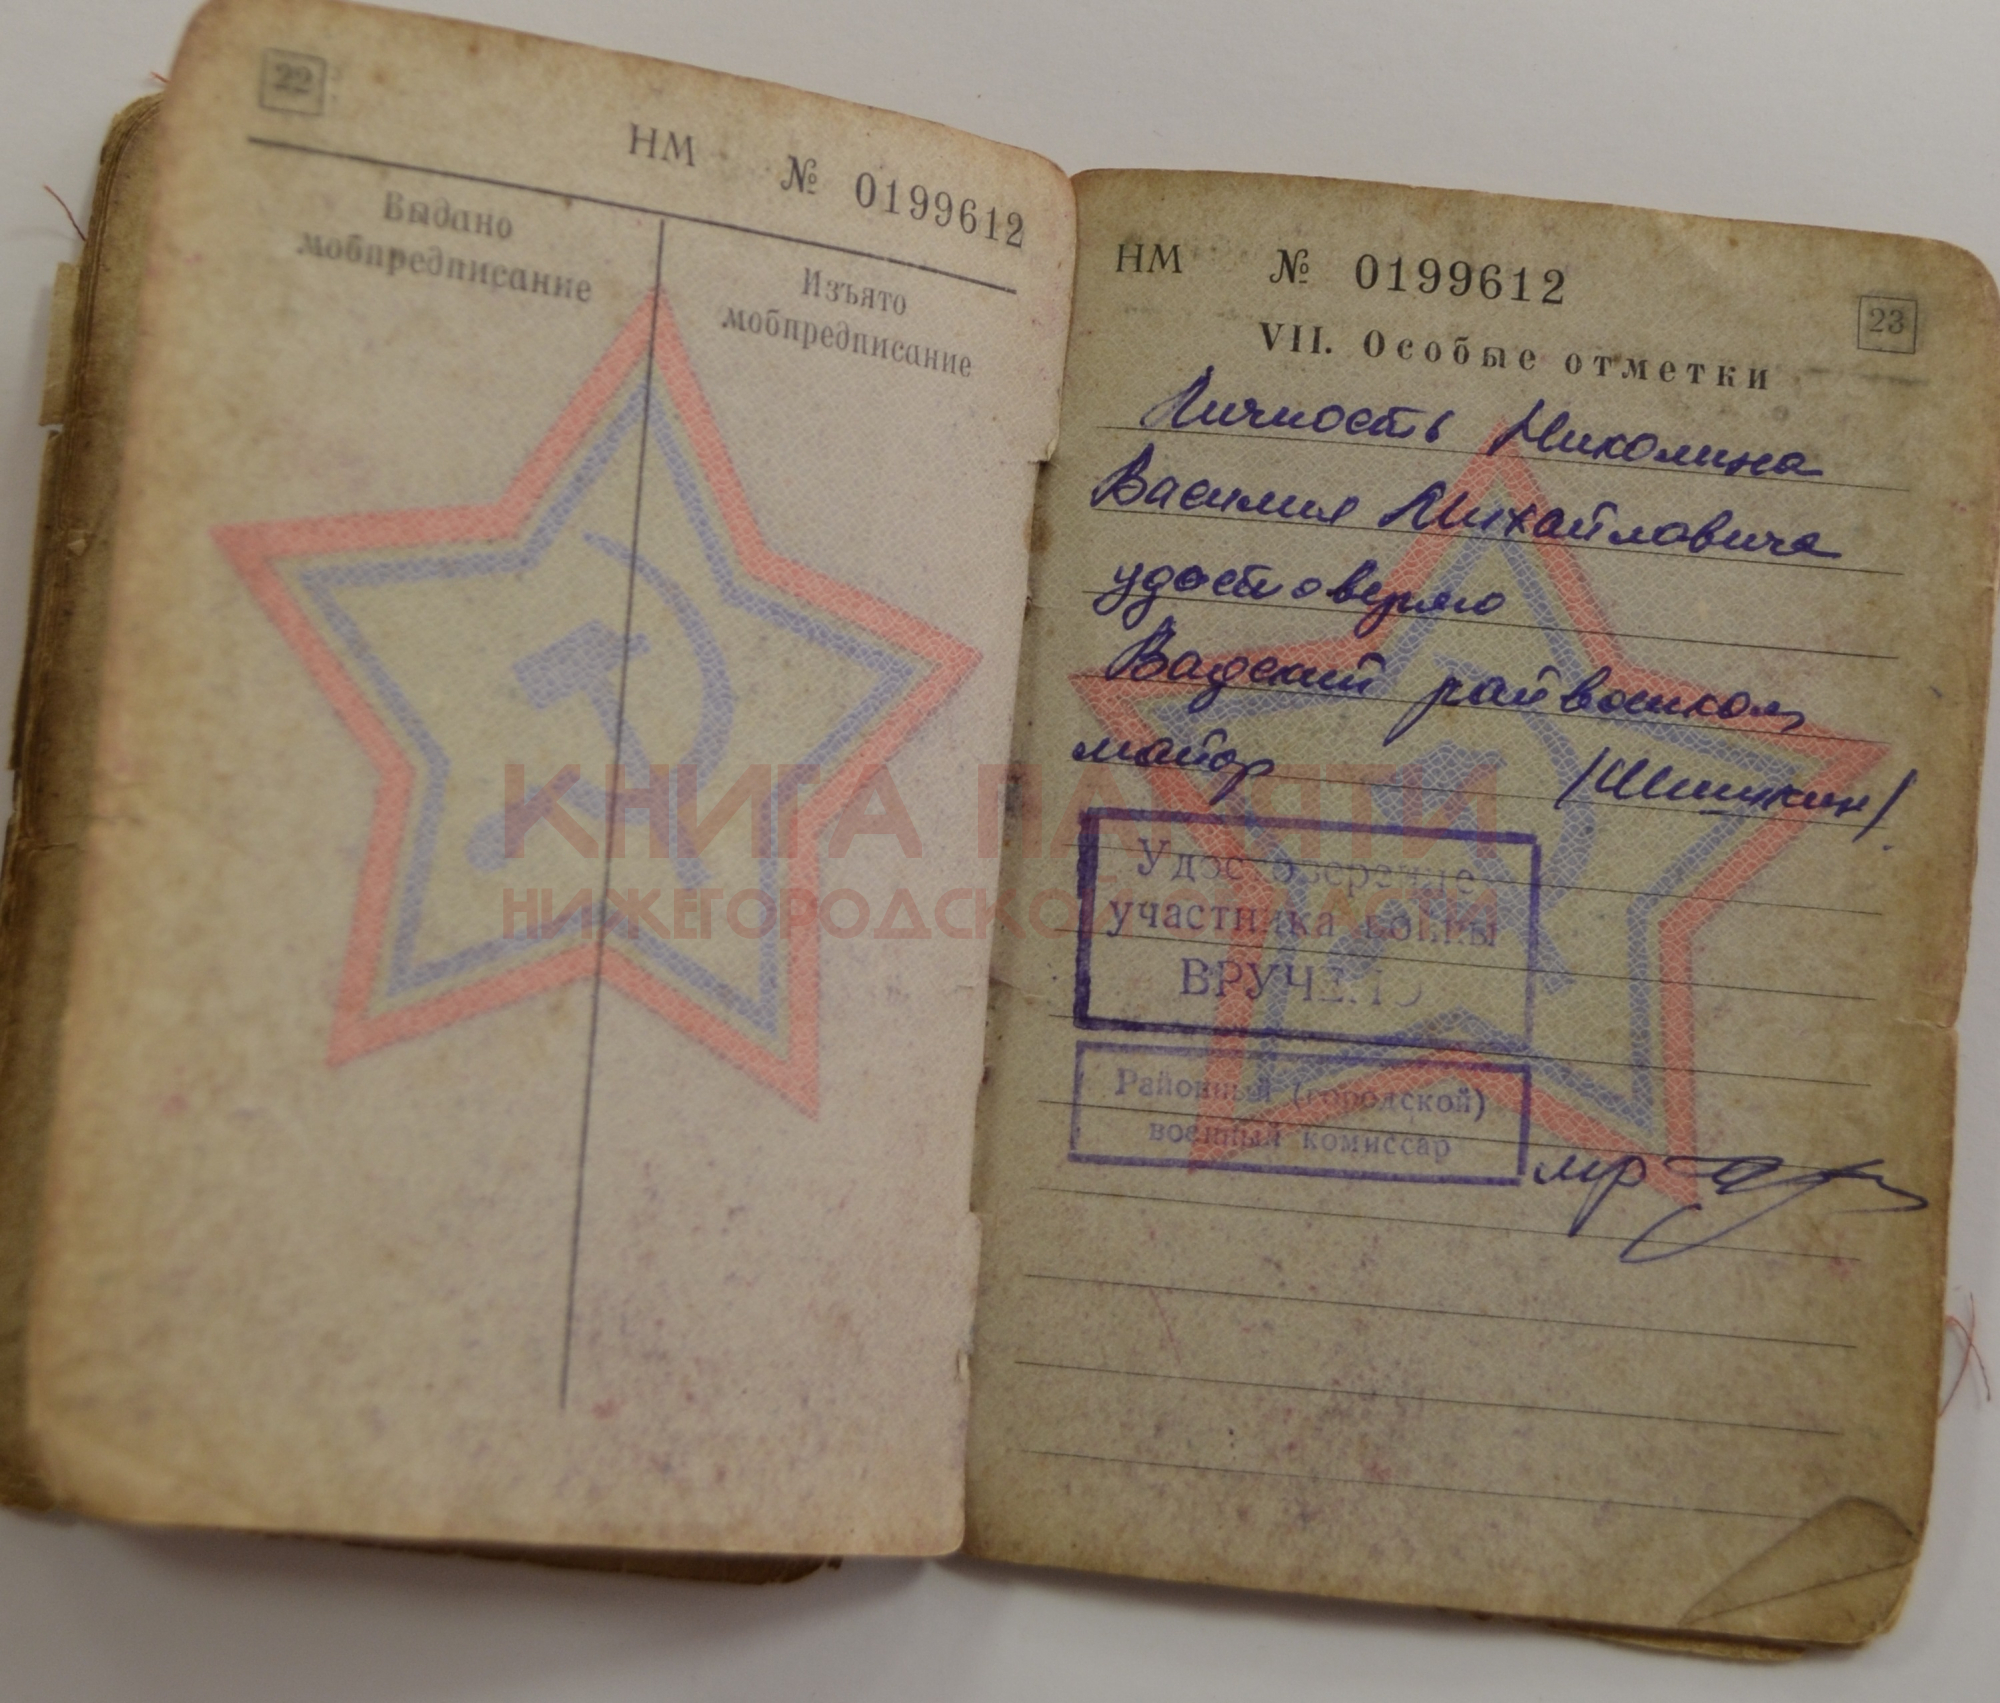 22
НМ № 0199612
Выдано
мобпредписание
Изъято
мобпредписание
НМ № 0199612
23
VII. Особые отметки
Личность Миколина
Василия Михайловича
удостоверяю
Вадский райвоенком
майор /Шишкин/
Удостоверение
участника войны
ВРУЧЕНО
Районный (городской)
военный комиссар
м-р
КНИГА ПАМЯТИ
НИЖЕГОРОДСКОЙ ОБЛАСТИ